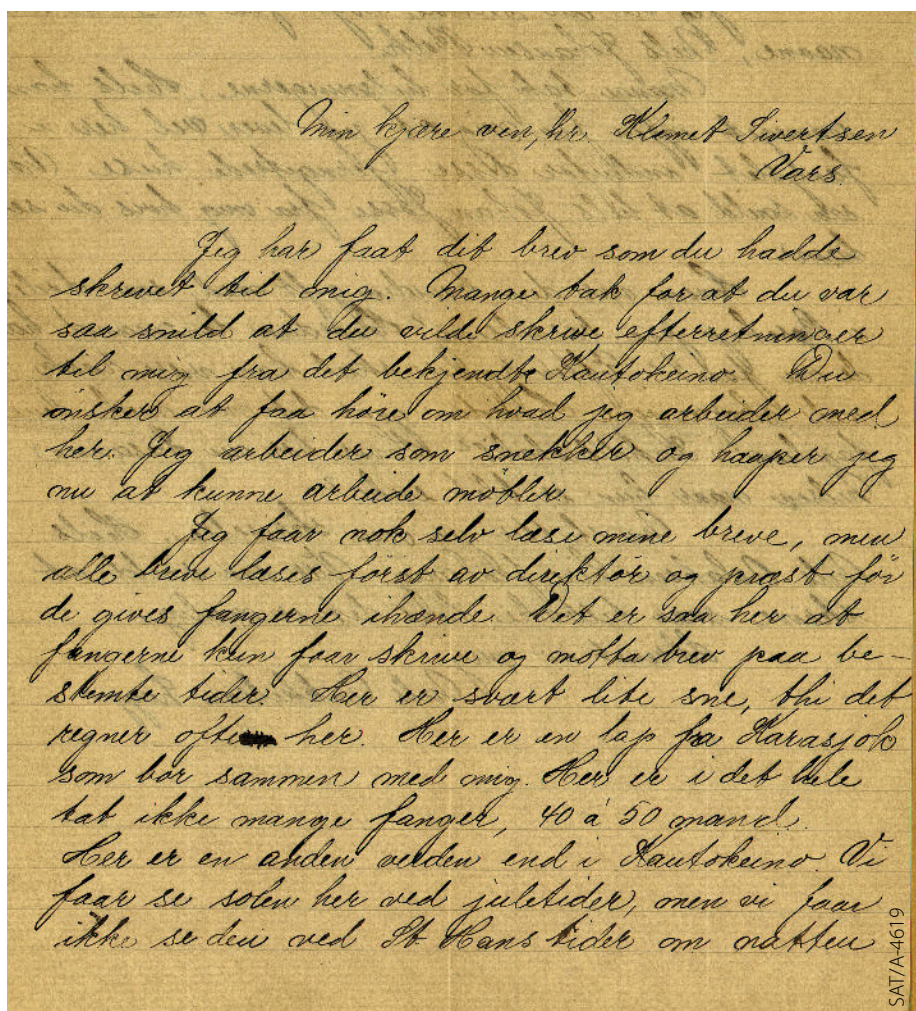 Min kjære ven, hr. Klemet Sivertsen
Vars.
Jeg har faat dit brev som du hadde
skrevet til mig. Mange tak for at du var
saa snild at du vilde skrive efterretninger
til mig fra det bekjendte Kautokeino. Du
ønsker at faa høre om hvad jeg arbeider med
her. Jeg arbeider som snekker og haaper jeg
nu at kunne arbeide møbler.
Jeg faar nok selv læse mine breve, men
alle breve læses først av direktør og præst før
de gives fangerne ihænde. Det er saa her at
fangerne kun faar skrive og motta brev paa be-
stemte tider. Her er svært lite sne, thi det
regner ofte her. Her er en lap fra Karasjok
som bor sammen med mig. Her er i det hele
tat ikke mange fanger, 40 à 50 mand.
Her er en anden verden end i Kautokeino. Vi
faar se solen her ved juletider, men vi faar
ikke se den ved St. Hans tider om natten
SAT/A-4619